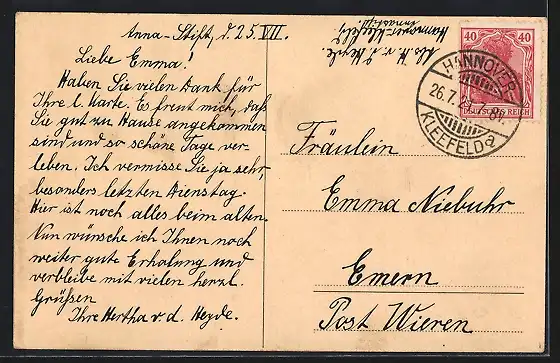 Anna-Stift, d. 25. VII.
Liebe Emma!
Haben Sie vielen Dank für
Ihre l. Karte. Es freut mich, daß
Sie gut zu Hause angekommen
sind und so schöne Tage ver-
leben. Ich vermisse Sie ja sehr,
besonders letzten Dienstag.
Hier ist noch alles beim alten.
Nun wünsche ich Ihnen noch
weiter gute Erholung und
verbleibe mit vielen herzl.
Grüßen
Ihre Hertha v. d. Heyde.
Abs. H. v. d. Heyde.
Hannover-Kleefeld
Annastift.
40 40
DEUTSCHES REICH
HANNOVER
26.7.21.7-8V.
KLEEFELD
Fräulein
Emma Niebuhr
Emern
Post Wieren